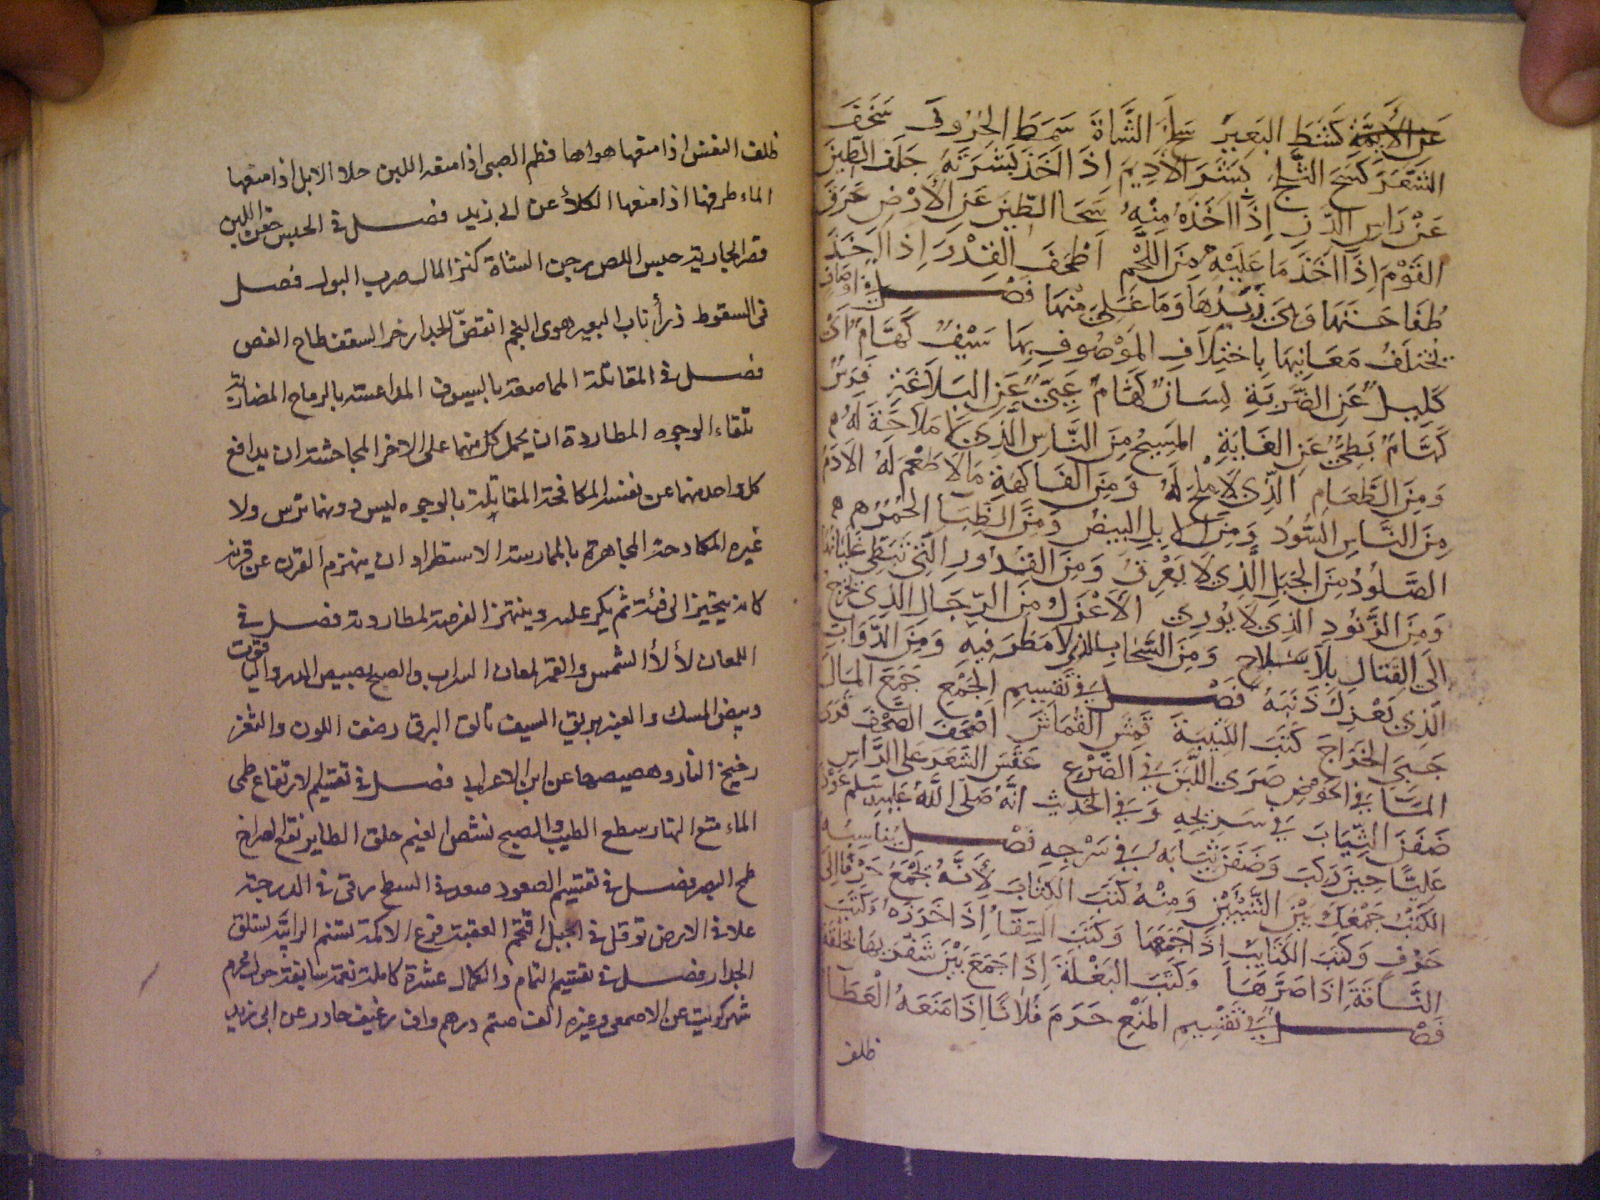 عن الأيمة كشط البعير سلخ الشاة سمط الخروف سحف
الشعر كسح الثلج بشر الاديم اذا اخذ بشرته جلف الطين
عن راس الدن اذا اخذه منه سحا الطين عن الارض عرق
القوم اذا اخذ ما عليه من اللحم اطحف القدر اذا اخذ
طفاحتها وهي زبدها وما علي منها فصل في اوصاف
تختلف معانيها باختلاف الموصوف بها سيف كهام اى
كليل عن الضريبة لسان كهام عيى عن البلاغة فرس
كهام بطئ عن الغاية المسيخ من الناس الذي لا ملاحة له
ومن الطعام الذي لا ملح له ومن الفاكهة ما لا طعم له الادم
من الناس السود ومن الابل البيض ومن الظبا الحمر
الصلود من الخيل الذي لا يعرق ومن القدور التي تبطئ غليانها
ومن الزنود الذي لا يوري الاعزل من الرجال الذي يخرج
الى القتال بلا سلاح ومن السحاب الذي لا مطر فيه ومن الدواب
الذي يعزل ذنبه فصل في تقسيم الجمع جمع المال
جبي الخراج كتب الكتيبة قمش القماش اصحف الصحف قرى
الما في الحوض صرى اللبن في الضرع عقص الشعر على الراس
ضفن الثياب في سرجه وفي الحديث انه صلى الله عليه وسلم عود
عليا حين ركب وضفن ثيابه في سرجه فصل يناسبه
الكتب جمعك بين الشيئين ومنه كتب الكتاب لأنه يجمع حرفا الى
حرف وكتب الكتايب اذا جمعها وكتب السقا اذا خرزه وكتب
الناقة اذا صرها وكتب البغلة اذا جمع بين شفريها بحلقة
فصل في تقسيم المنع حرم فلانا اذا منعه العطا
ظلف
ظلف النفس اذا منعها هواها فطم الصبى اذا منعه اللبن حلا الابل اذا منعها
الماء طرفها اذا منعها الكلأ عن ابى زيد فصل فى الحبس حقن اللبن
قصر الجارية حبس اللص رجن الشاة كنز المال صرب البول فصل
فى السقوط ذرأ ناب البعير هوى النجم انقض الجدار خر السقف طاح الفص
فصل فى المقاتلة المماصعة بالسيوف المداعسة بالرماح المضاربة
تلقاء الوجوه المطاردة ان يحمل كل منهما على الاخر المجاحشة ان يدافع
كل واحد منهما عن نفسه المكافحة المقاتلة بالوجوه ليس دونهما ترس ولا
غيره المكادحة المجاهرة بالممارسة الاستطراد ان ينهزم القرن عن قرنه
كانه يتحيز الى فئة ثم يكر عليه وينتهز الفرصة لمطاردته فصل فى
اللمعان لألأ الشمس والقمر لمعان السراب والصبح بصيص الدر والياقوت
وبيض المسك والعنبر بريق السيف تالق البرق رفيف اللون والثغر
اجيج النار وهصيصها عن ابن الاعرابي فصل فى تقسيم الارتفاع طمى
الماء متع النهار سطع الطيب والصبح نشص الغيم حلق الطاير نقع الصراخ
طمح البصر فصل فى تقسيم الصعود صعد فى السطح رقى فى الدرجة
علا فى الارض توقل فى الجبل اقتحم العقبة فرع الاكمة تسنم الرابية تسلق
الجدار فصل فى تقسيم التمام والكمال عشرة كاملة نعمة سابغة حول مجرم
شهر كريت عن الاصمعى وغيره الف صتم درهم واف رغيف حادر عن ابى زيد